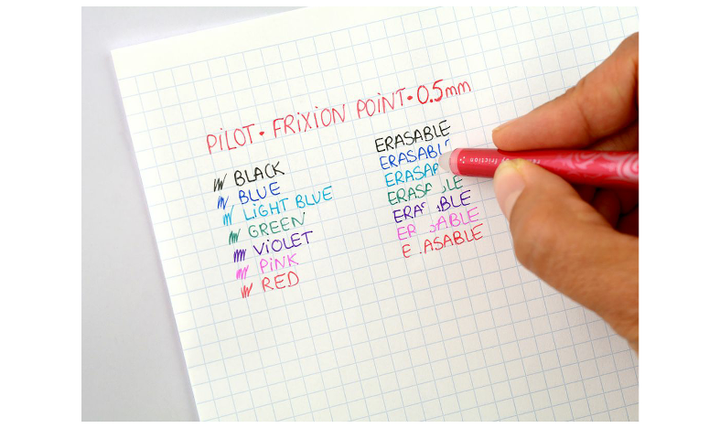 PiLOT • FRiXiON POiNT • 0.5mm
BLACK
BLUE
LiGHT BLUE
GREEN
ViOLET
PiNK
RED
ERASABLE
ERASABL
ERASAB
ERASA LE
ERA ABLE
ER SABLE
E ASABLE